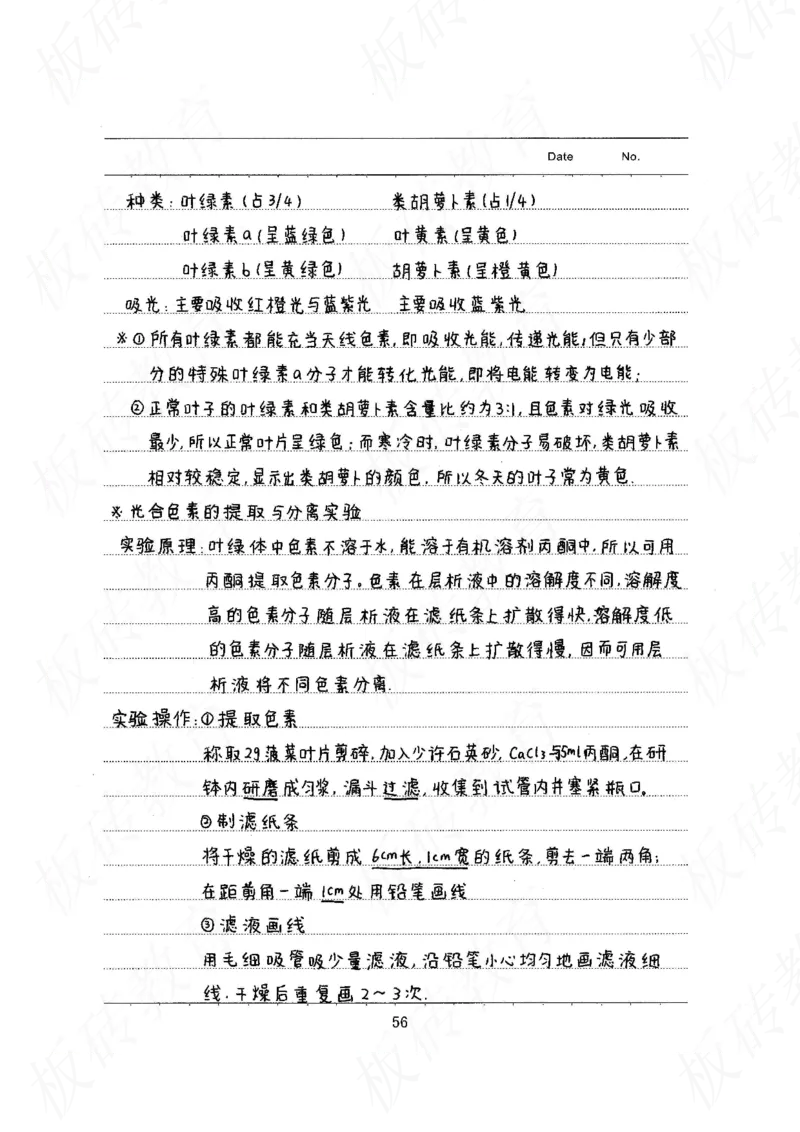 Date No.
种类：叶绿素（占3/4） 类胡萝卜素（占1/4）
叶绿素a（呈蓝绿色） 叶黄素（呈黄色）
叶绿素b（呈黄绿色） 胡萝卜素（呈橙黄色）
吸光：主要吸收红橙光与蓝紫光 主要吸收蓝紫光
※①所有叶绿素都能充当天线色素，即吸收光能，传递光能，但只有少部
分的特殊叶绿素a分子才能转化光能，即将电能转变为电能；
②正常叶子的叶绿素和类胡萝卜素含量比约为3:1，且色素对绿光吸收
最少，所以正常叶片呈绿色；而寒冷时，叶绿素分子易破坏，类胡萝卜素
相对较稳定，显示出类胡萝卜的颜色，所以冬天的叶子常为黄色．
※光合色素的提取与分离实验
实验原理：叶绿体中色素不溶于水，能溶于有机溶剂丙酮中，所以可用
丙酮提取色素分子。色素在层析液中的溶解度不同，溶解度
高的色素分子随层析液在滤纸条上扩散得快，溶解度低
的色素分子随层析液在滤纸条上扩散得慢，因而可用层
析液将不同色素分离．
实验操作：①提取色素
称取2g菠菜叶片剪碎，加入少许石英砂，CaCl3与5ml丙酮，在研
钵内研磨成匀浆，漏斗过滤，收集到试管内并塞紧瓶口。
②制滤纸条
将干燥的滤纸剪成6cm长，1cm宽的纸条，剪去一端两角；
在距剪角一端1cm处用铅笔画线
③滤液画线
用毛细吸管吸少量滤液，沿铅笔小心均匀地画滤液细
线．干燥后重复画2～3次．
56
板砖教育